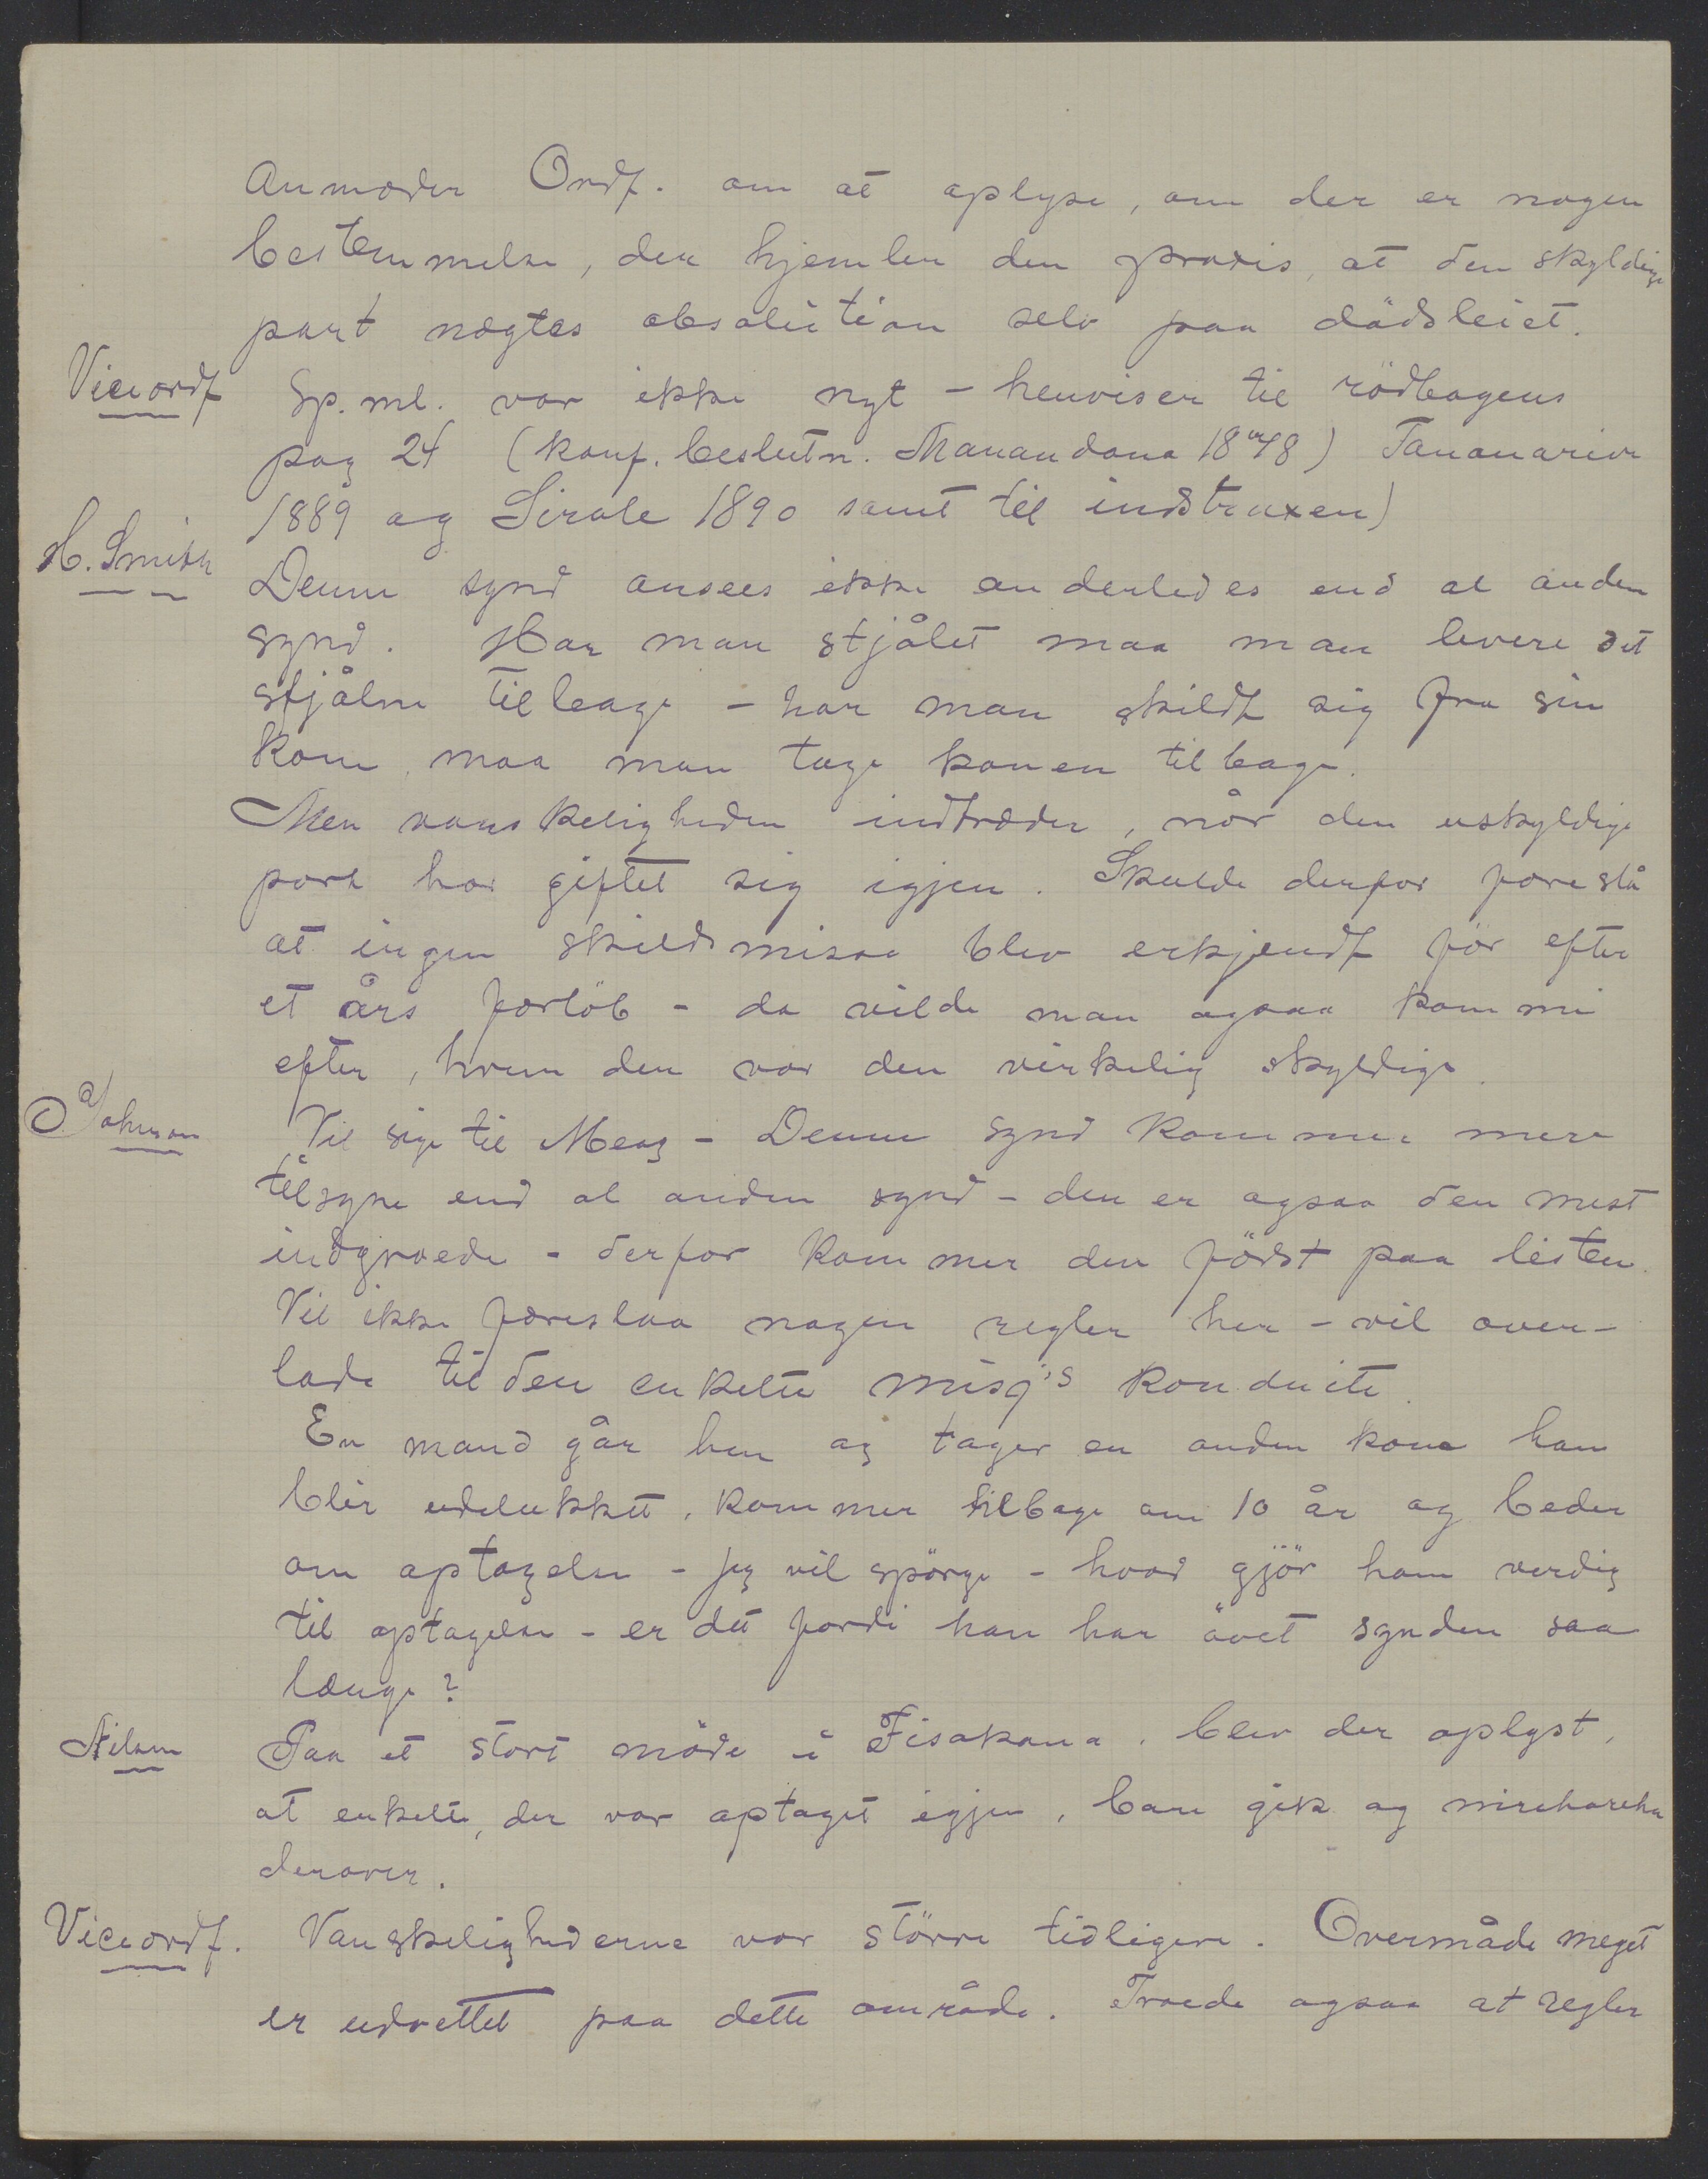 Anmoder Ordf. om at oplyse, om der er nogen
bestemmelse, der hjemler den praxis, at den skyldige
part nægtes absolution selv paa dödsleiet.
Viceordf Sp. ml. var ikke nyt - henviser til rödbogens
pag 24 (konf. beslutn. Manandona 1878) Tananarive
1889 og Sirabe 1890 samt til instruxen)
H. Smith Denne synd ansees ikke anderledes end al anden
synd. Har man stjålet maa man levere det
stjålne tilbage - har man skildt sig fra sin
kone, maa man tage konen tilbage.
Men vanskeligheden indtræder, når den uskyldige
part har giftet sig igjen. Skulde derfor foreslå
at ingen skilsmisse blev erkjendt för efter
et års forlöb - da vilde man ogsaa komme
efter, hvem der var den virkelig skyldige.
Johnson Vil sige til Meng - Denne synd kommer mere
tilsyne end al anden synd - den er ogsaa den mest
indgroede - derfor kommer den först paa listen.
Vil ikke foreslaa nogen regler her - vil over-
lade til den enkelte misj's konduite.
En mand går hen og tager en anden kone han
blir udelukket, kommer tilbage om 10 år og beder
om optagelse - jeg vil spörge - hvad gjör ham verdig
til optagelse - er det fordi han har övet synden saa
længe?
Nilsen Paa et stort möde i Fisakana, blev der oplyst,
at enkelte, der var optaget igjen, bare gik og mirehareha
derover.
Viceordf. Vanskelighederne var större tidligere. Overmåde meget
er udrettet paa dette område. Troede ogsaa at regler